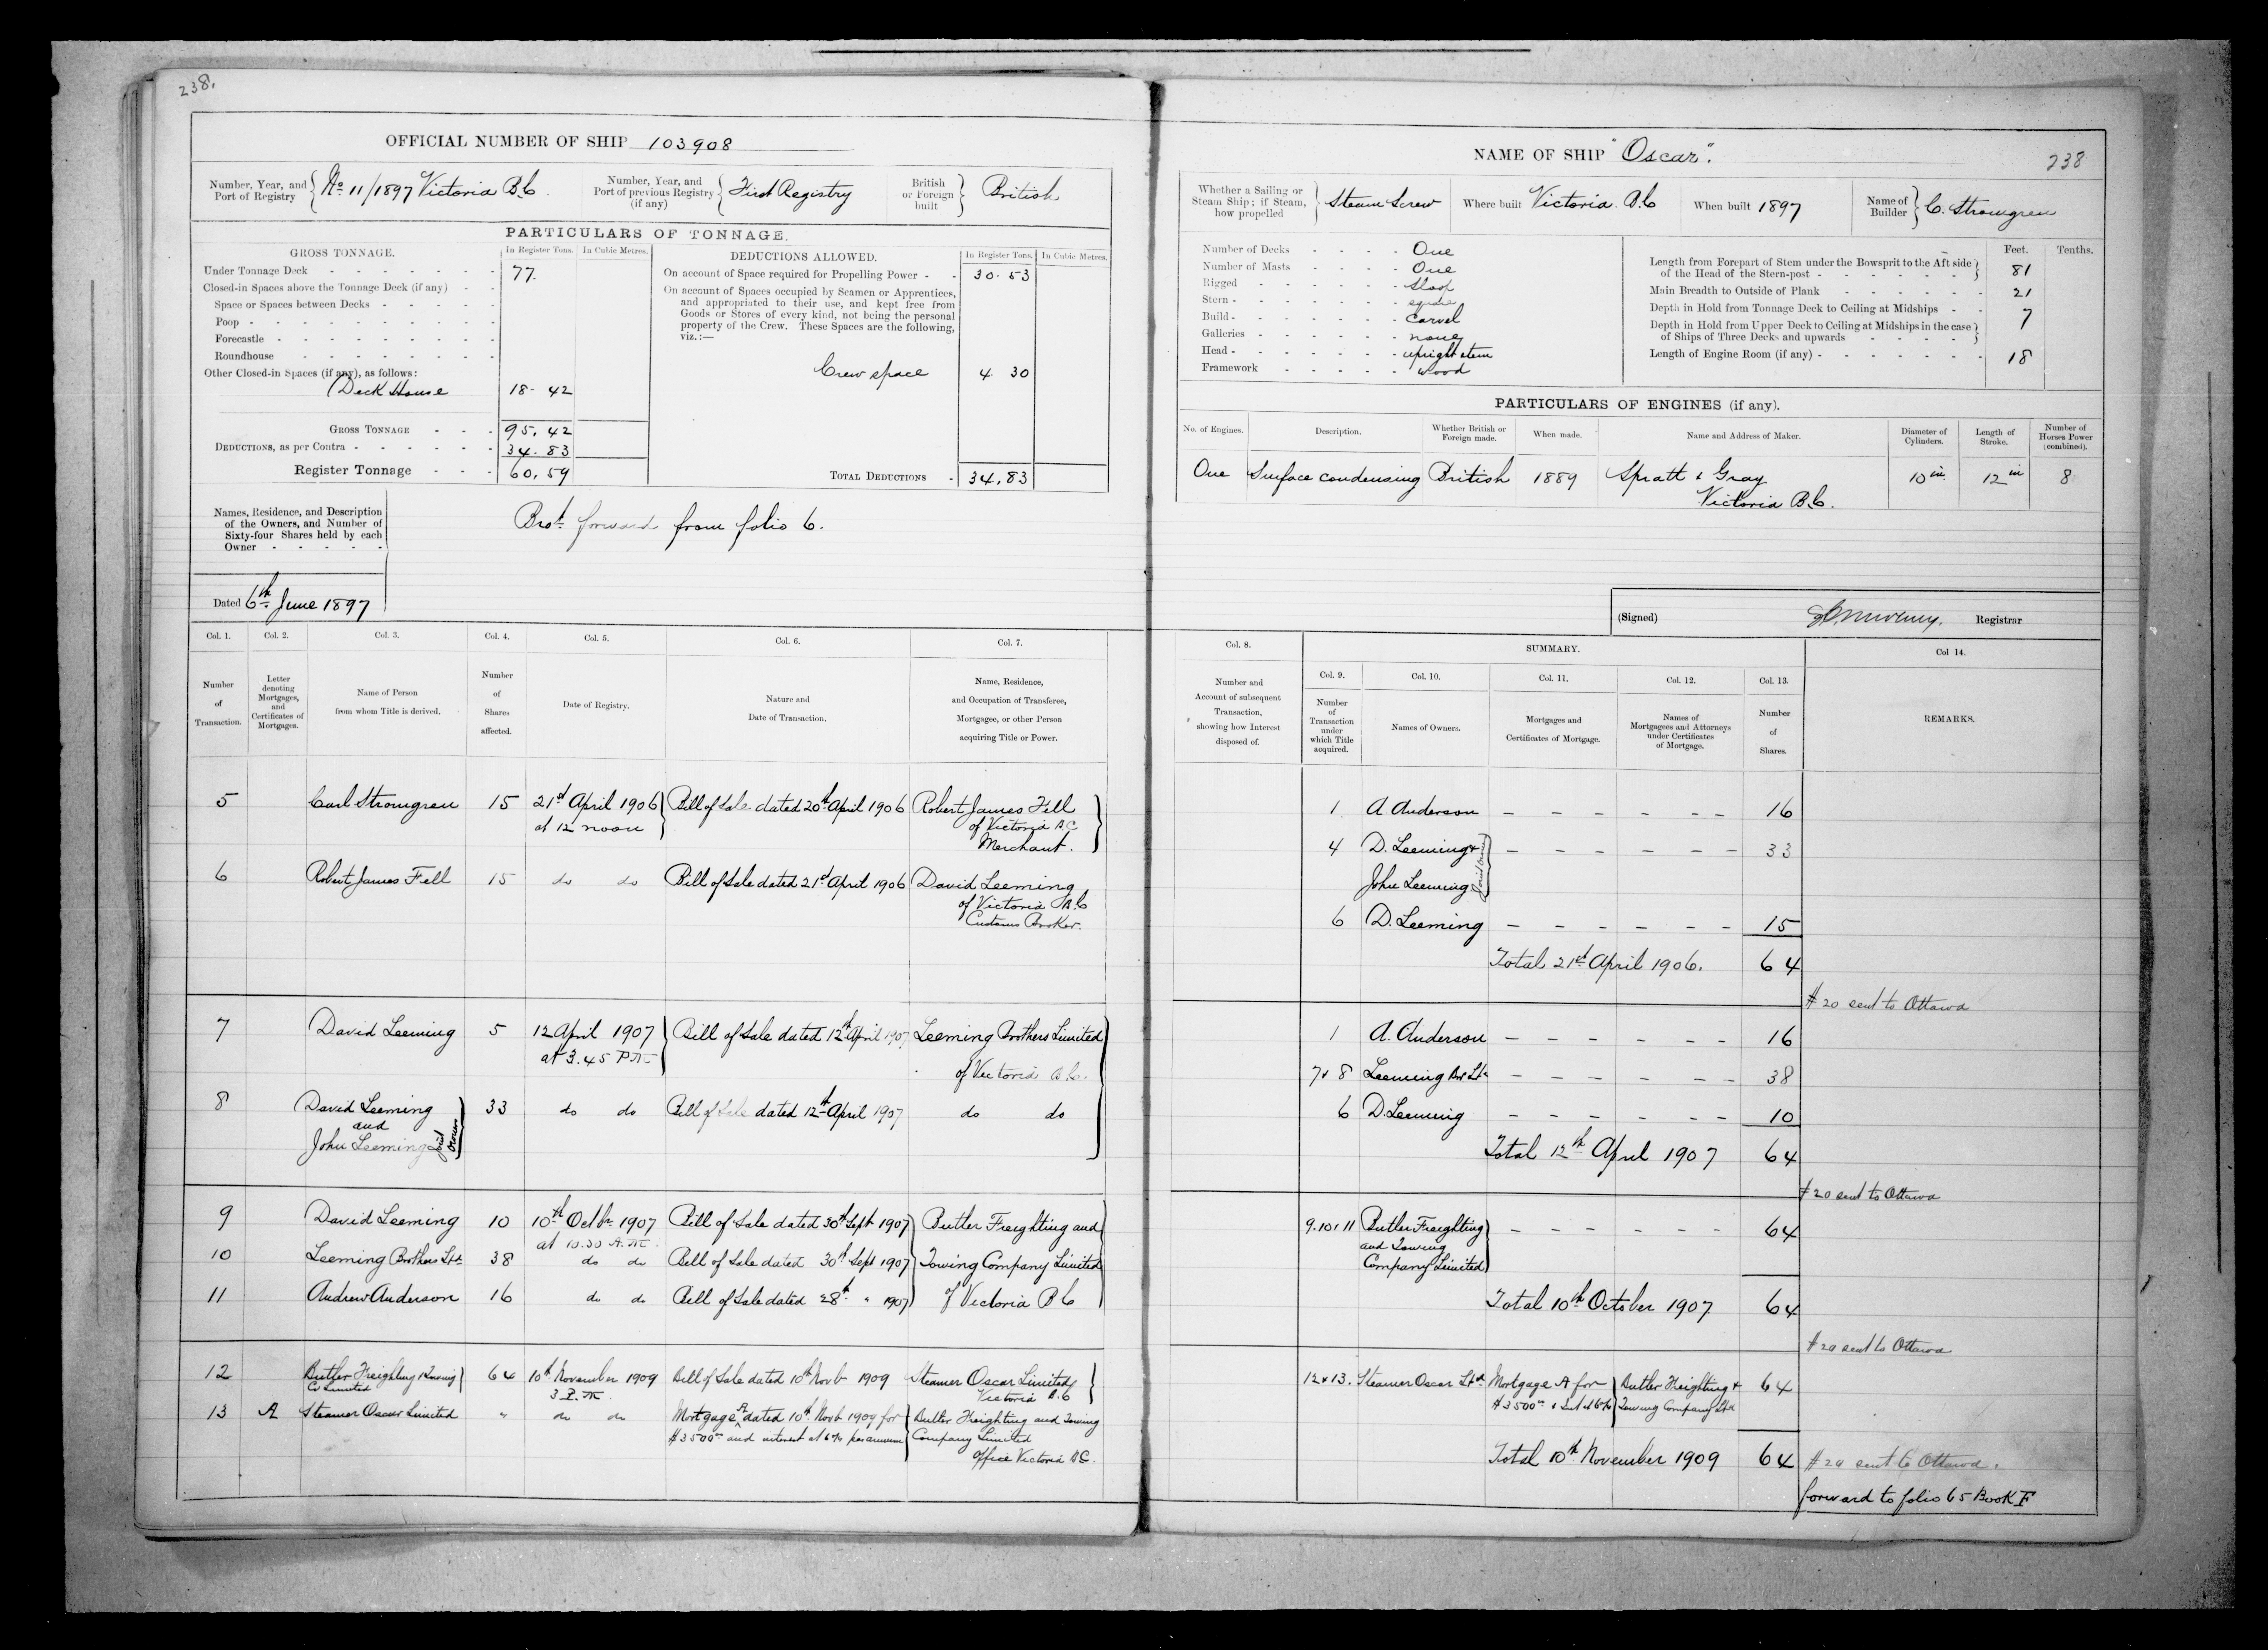 238.
OFFICIAL NUMBER OF SHIP 103908
Number, Year, and Port of Registry { No 11/1897 Victoria B.C.
Number, Year, and Port of previous Registry (if any) { First Registry
British or Foreign built } British
PARTICULARS OF TONNAGE.
GROSS TONNAGE. In Register Tons. In Cubic Metres.
Under Tonnage Deck - - - - - - 77.
Closed-in Spaces above the Tonnage Deck (if any) - -
Space or Spaces between Decks - - - - -
Poop - - - - - - - - -
Forecastle - - - - - - - -
Roundhouse - - - - - -
Other Closed-in Spaces (if any), as follows:
Deck House 18 - 42
GROSS TONNAGE - - - 95.42
DEDUCTIONS, as per Contra - - - - - - 34.83
Register Tonnage - - - 60.59
DEDUCTIONS ALLOWED. In Register Tons. In Cubic Metres.
On account of Space required for Propelling Power - - 30.53
On account of Spaces occupied by Seamen or Apprentices,
and appropriated to their use, and kept free from
Goods or Stores of every kind, not being the personal
property of the Crew. These Spaces are the following,
viz.:—
Crew space 4 30
TOTAL DEDUCTIONS - 34.83
Names, Residence, and Description
of the Owners, and Number of
Sixty-four Shares held by each
Owner - - - - -
Brot forward from folio 6.
Dated 6th June 1897
Col. 1. Col. 2. Col. 3. Col. 4. Col. 5. Col. 6. Col. 7.
Number of Transaction.
Letter denoting Mortgages, and Certificates of Mortgages.
Name of Person from whom Title is derived.
Number of Shares affected.
Date of Registry.
Nature and Date of Transaction.
Name, Residence, and Occupation of Transferee, Mortgagee, or other Person acquiring Title or Power.
5 Carl Stromgren 15 21st April 1906 Bill of Sale dated 20th April 1906 Robert James Fell
at 12 noon of Victoria B.C
Merchant.
6 Robert James Fell 15 do do Bill of Sale dated 21st April 1906 David Leeming
of Victoria B.C
Customs Broker.
7 David Leeming 5 12 April 1907 Bill of Sale dated 12th April 1907 Leeming Brothers Limited
at 3.45 P.M. of Victoria B.C.
8 David Leeming 33 do do Bill of Sale dated 12th April 1907 do do
and
John Leeming Joint Owners
9 David Leeming 10 10th Octbr 1907 Bill of Sale dated 30th Sept 1907 Butler Freighting and
at 10.30 A.M.
10 Leeming Brothers Ltd 38 do do Bill of Sale dated 30th Sept 1907 Towing Company Limited
11 Andrew Anderson 16 do do Bill of Sale dated 28th " 1907 of Victoria B C
12 Butler Freighting & Towing 64 10th November 1909 Bill of Sale dated 10th Novb 1909 Steamer Oscar Limited
Co Limited 3 P.M. Victoria B.C
13 A Steamer Oscar Limited " do do Mortgage A dated 10th Novb 1909 for Butler Freighting and Towing
$3500.00 and interest at 6% per annum Company Limited
office Victoria B.C.
NAME OF SHIP "Oscar". 238
Whether a Sailing or Steam Ship; if Steam, how propelled } Steam Screw
Where built Victoria. B.C
When built 1897
Name of Builder } C. Stromgren
Number of Decks - - - - One
Number of Masts - - - - One
Rigged - - - - - - Sloop
Stern - - - - - - square
Build - - - - - - carvel
Galleries - - - - - none
Head - - - - - - upright stem
Framework - - - - - wood
Feet. Tenths.
Length from Forepart of Stem under the Bowsprit to the Aft side
of the Head of the Stern-post - - - - - - 81
Main Breadth to Outside of Plank - - - - - - 21
Depth in Hold from Tonnage Deck to Ceiling at Midships - - 7
Depth in Hold from Upper Deck to Ceiling at Midships in the case
of Ships of Three Decks and upwards - - - -
Length of Engine Room (if any) - - - - - - - 18
PARTICULARS OF ENGINES (if any).
No. of Engines. Description. Whether British or Foreign made. When made. Name and Address of Maker. Diameter of Cylinders. Length of Stroke. Number of Horses Power (combined).
One Surface condensing British 1889 Spratt & Gray 10 in 12 in 8
Victoria B.C.
(Signed) Registrar
Col. 8. SUMMARY. Col 14.
Col. 9. Col. 10. Col. 11. Col. 12. Col. 13.
Number and Account of subsequent Transaction, showing how Interest disposed of.
Number of Transaction under which Title acquired.
Names of Owners.
Mortgages and Certificates of Mortgage.
Names of Mortgagees and Attorneys under Certificates of Mortgage.
Number of Shares.
REMARKS.
1 A. Anderson - - - - - - 16
4 D. Leeming & - - - - - - 33
John Leeming Joint Owners
6 D. Leeming - - - - - - 15
Total 21st April 1906. 64
# 20 sent to Ottawa
1 A. Anderson - - - - - - 16
7 & 8 Leeming Bros Ltd - - - - - 38
6 D. Leeming - - - - - - 10
Total 12th April 1907 64
# 20 sent to Ottawa
9.10 & 11 Butler Freighting - - - - - - 64
and Towing
Company Limited
Total 10th October 1907 64
# 20 sent to Ottawa
12 & 13. Steamer Oscar Ltd Mortgage A for Butler Freighting & 64
$3500.00 & Int at 6% Towing Company Ltd
Total 10th November 1909 64 # 20 sent to Ottawa.
forward to folio 65 Book F